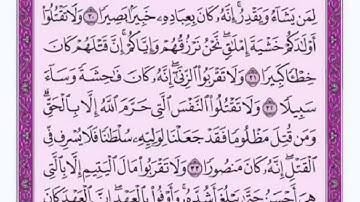 لِمَن يَشَآءُ وَيَقْدِرُ ۚ إِنَّهُۥ كَانَ بِعِبَادِهِۦ خَبِيرًۢا بَصِيرًا ٣٠ وَلَا تَقْتُلُوٓا۟
أَوْلَٰدَكُمْ خَشْيَةَ إِمْلَٰقٍ ۖ نَّحْنُ نَرْزُقُهُمْ وَإِيَّاكُمْ ۚ إِنَّ قَتْلَهُمْ كَانَ
خِطْـًٔا كَبِيرًا ٣١ وَلَا تَقْرَبُوا۟ ٱلزِّنَىٰٓ ۖ إِنَّهُۥ كَانَ فَٰحِشَةً وَسَآءَ
سَبِيلًا ٣٢ وَلَا تَقْتُلُوا۟ ٱلنَّفْسَ ٱلَّتِى حَرَّمَ ٱللَّهُ إِلَّا بِٱلْحَقِّ ۗ
وَمَن قُتِلَ مَظْلُومًا فَقَدْ جَعَلْنَا لِوَلِيِّهِۦ سُلْطَٰنًا فَلَا يُسْرِف فِّى
ٱلْقَتْلِ ۖ إِنَّهُۥ كَانَ مَنصُورًا ٣٣ وَلَا تَقْرَبُوا۟ مَالَ ٱلْيَتِيمِ إِلَّا بِٱلَّتِى
هِىَ أَحْسَنُ حَتَّىٰ يَبْلُغَ أَشُدَّهُۥ ۚ وَأَوْفُوا۟ بِٱلْعَهْدِ ۖ إِنَّ ٱلْعَهْدَ كَانَ